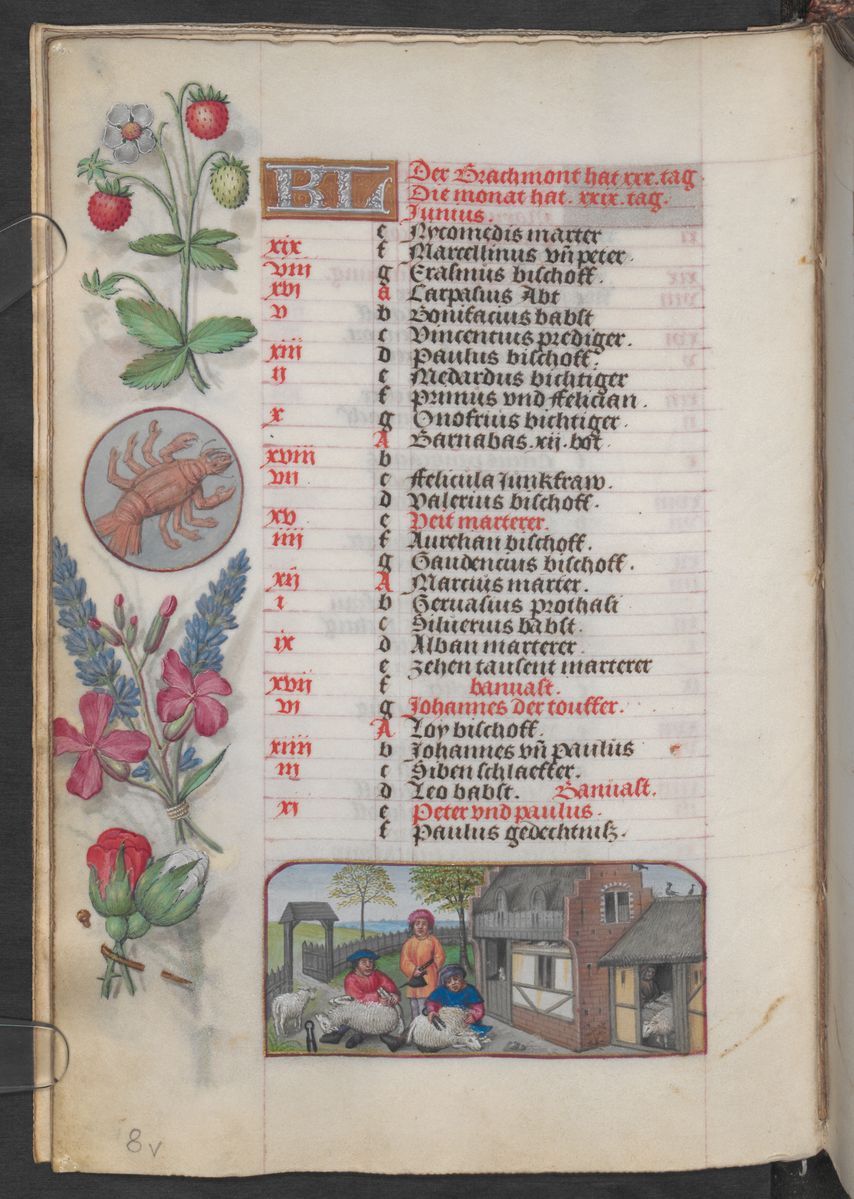 KL Der Brachmont hat xxx. tag
Die monat hat. xxix. tag.
Junius.
e Nycomedis marter
xix f Marcellinus vn̄ peter.
viii g Erasmus bischoff.
xvi a Carpasius Abt
v b Bonifacius babst
c Vincencius prediger.
xiii d Paulus bischoff.
ij e Medardus bichtiger
f Primus vnd ffelician.
x g Onofrius bichtiger.
A Barnabas. xij. bot.
xviii b
vij c ffelicula Junkfraw.
d Valerius bischoff.
xv e Veit marterer.
iiii f Aurelian bischoff.
g Gaudencius bischoff.
xij A Marcius marter.
i b Geruasius prothasi
c Siluerius babst.
ix d Alban marterer.
e zehen tausent marterer
xvij f banuast.
vi g Johannes der touffer.
A Loy bischoff.
xiiii b Johannes vn̄ paulus
iij c Siben schlaeffer.
d Leo babst. Banuast.
xi e Peter vnd paulus.
f Paulus gedechtniß.
8v